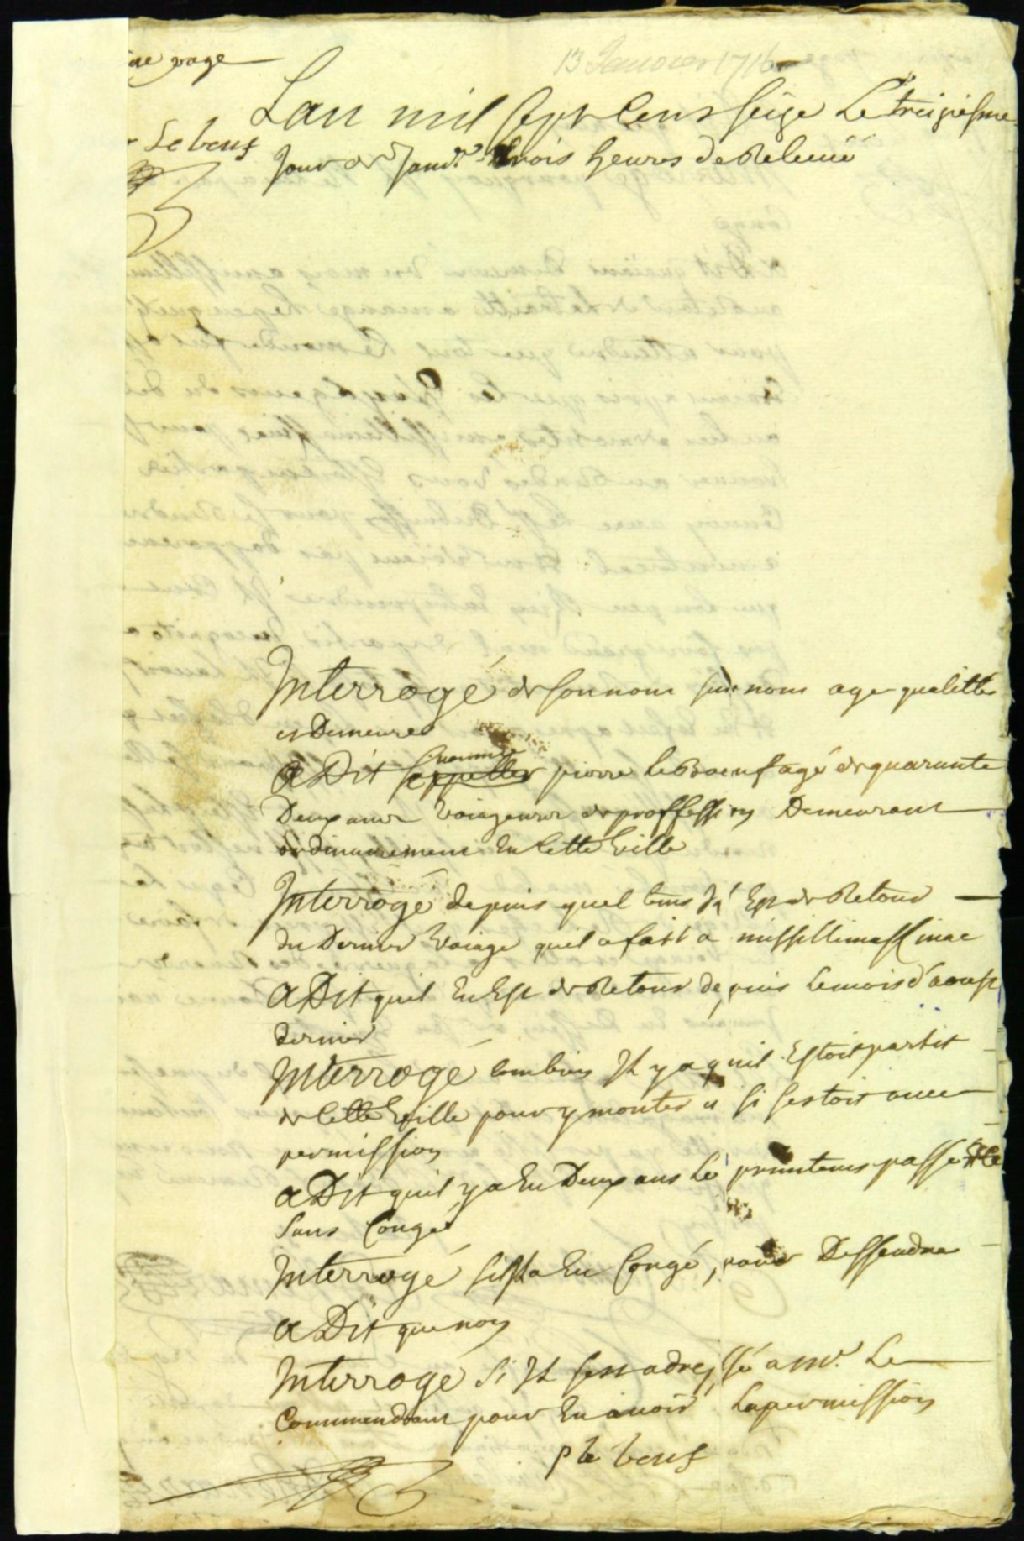 page
13 Janvier 1716
Lan mil Sept Cens seize Le treiziesme
Le beuf
Jour de Janv.er trois heures de Relevée
Interrogé de son nom surnom age qualittés
et Demeure
A Dit se nommer pierre Leboeuf agé de quarante
Deux ans Voiageur de proffession Demeurant
ordinairement En Cette Ville
Interrogé depuis quel tems Il Est de Retour
du Dernier Voiage quil a fait a missillimakinac
A Dit quil En Est de Retour depuis le mois d'aoust
dernier
Interrogé combien Il y a quil Estoit partit
de Cette Ville pour y monter et si sestoit avec
permission
A Dit quil y a Eu Deux ans Le printems passé
sans Congé
Interrogé sil a Eu Congé, pour Dessendre
A Dit que non
Interrogé Si Il sest adressé a mr. Le
Commendant pour En avoir La permission
p le beuf